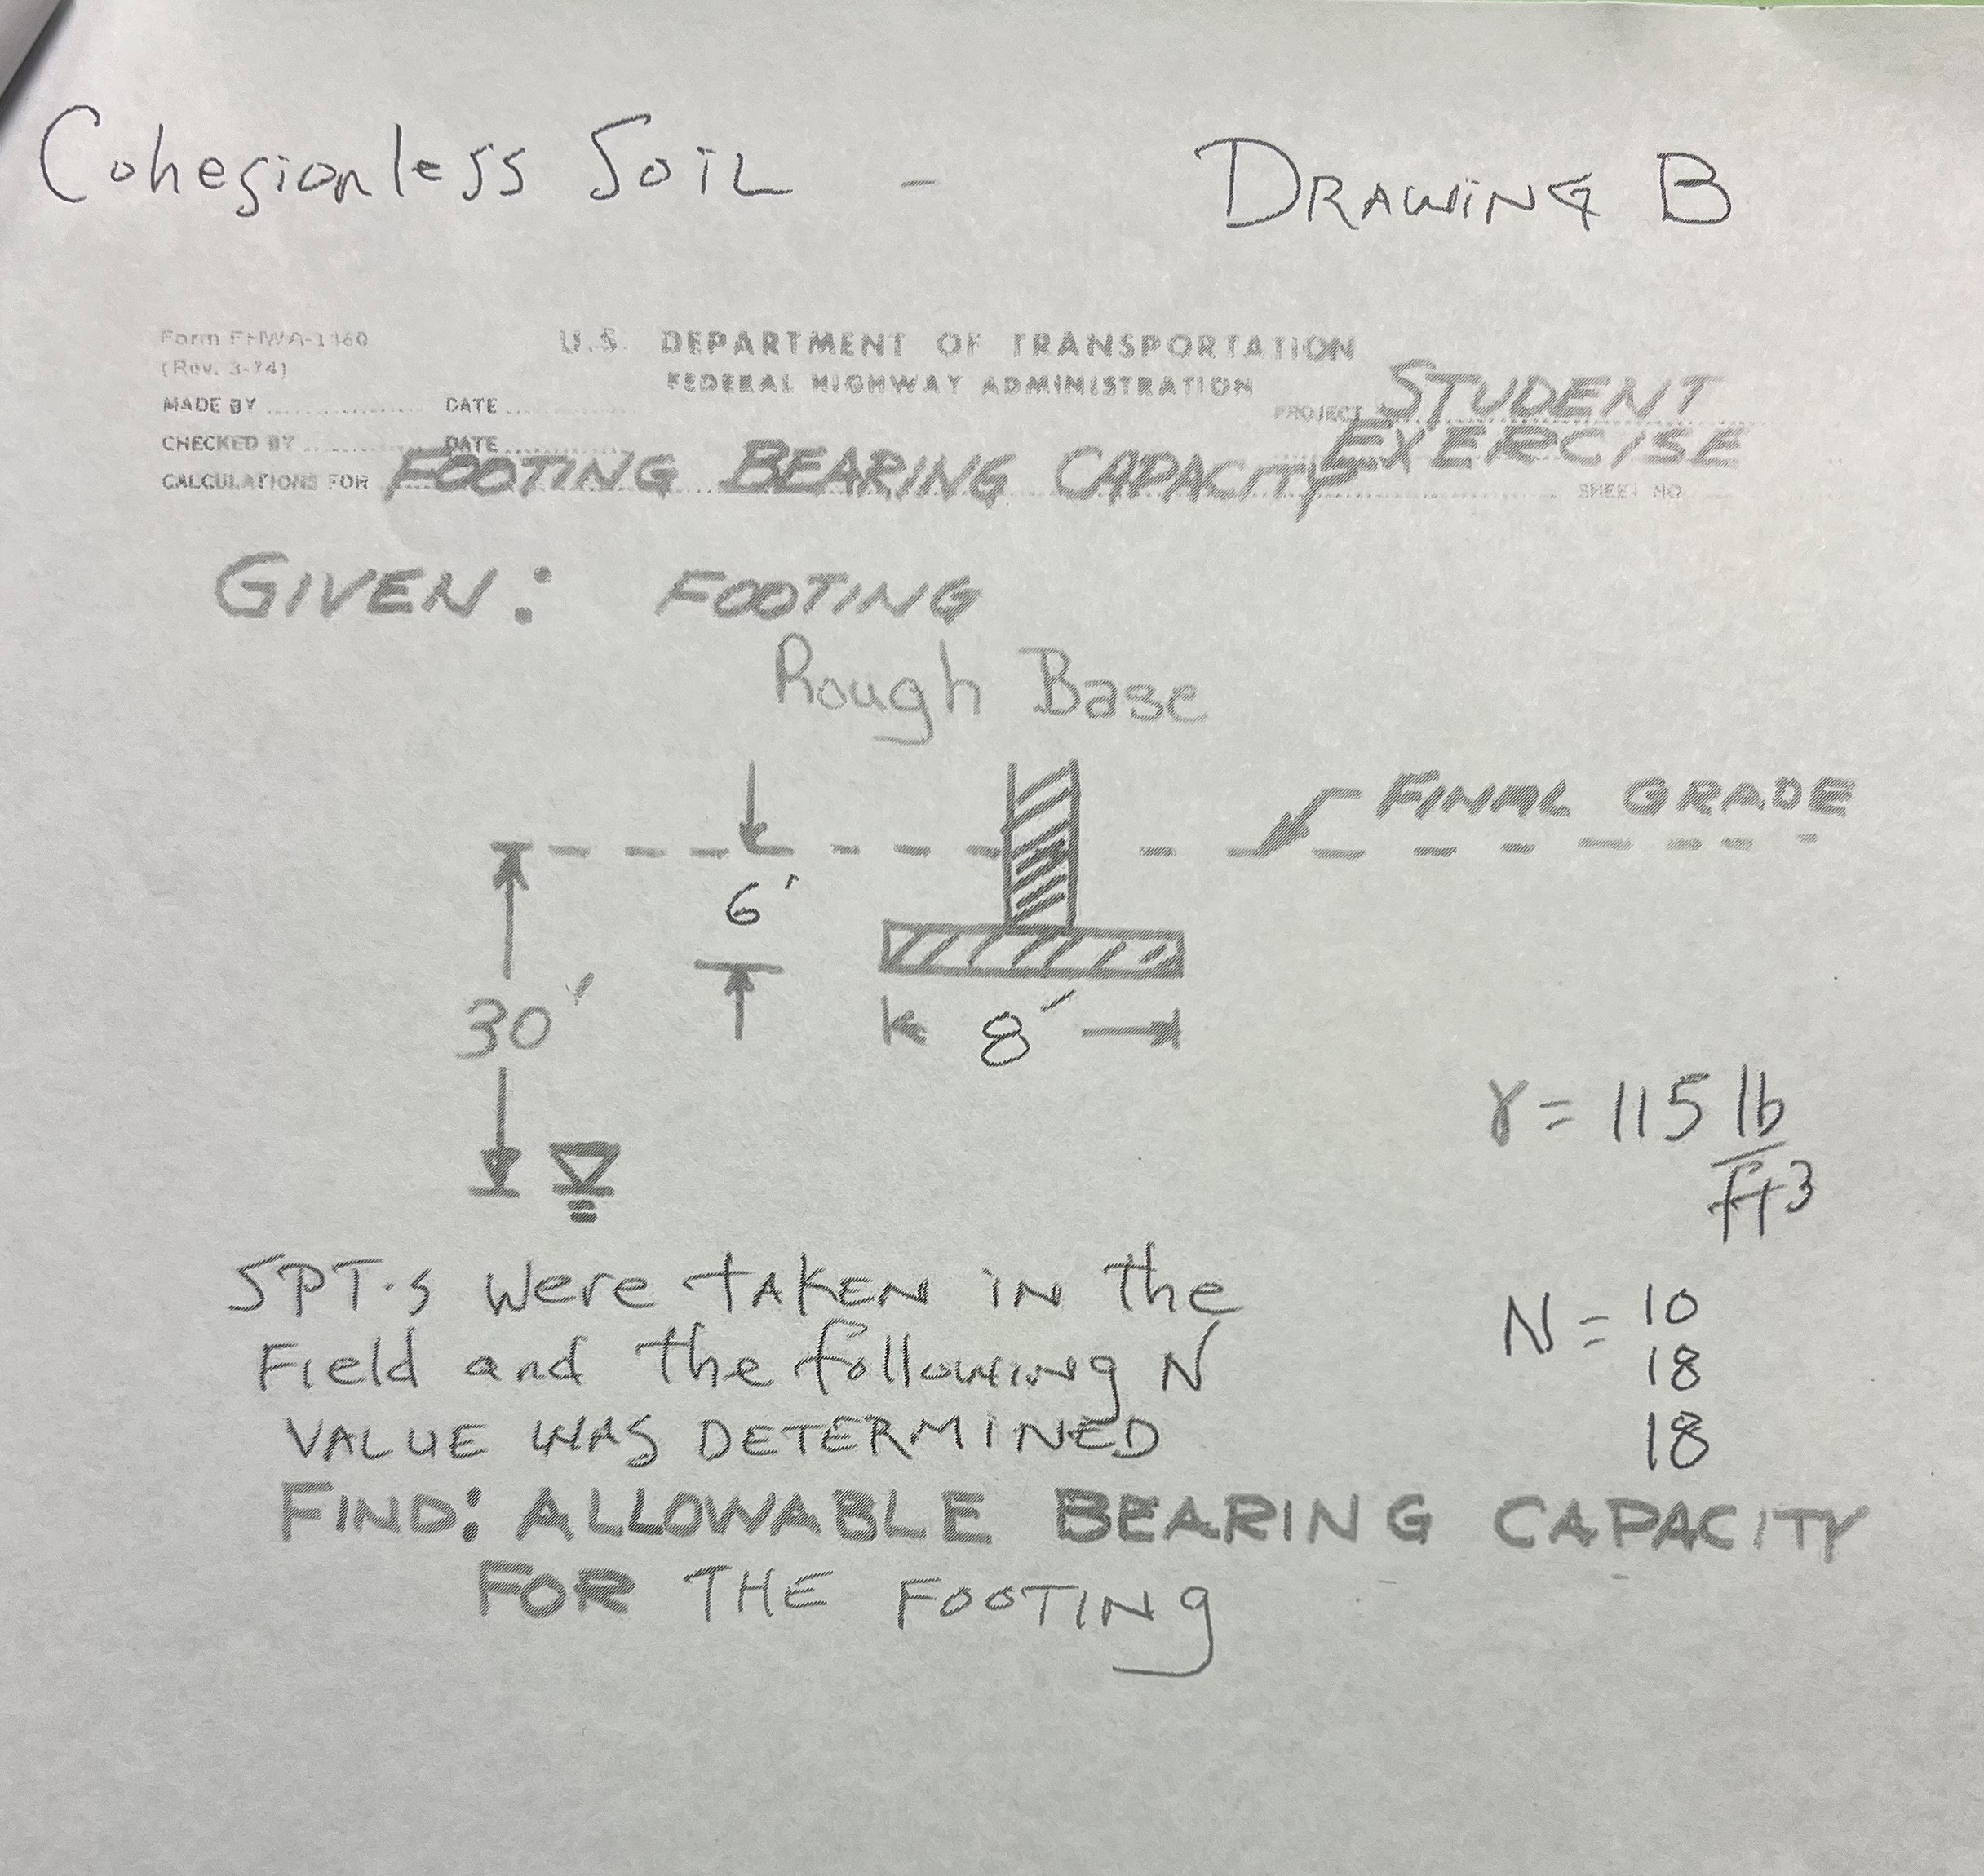 Cohesionless Soil - DRAWING B
Form FHWA-1160 U.S. DEPARTMENT OF TRANSPORTATION
(Rev. 3-74) FEDERAL HIGHWAY ADMINISTRATION
MADE BY DATE PROJECT STUDENT
CHECKED BY DATE EXERCISE
CALCULATIONS FOR FOOTING BEARING CAPACITY SHEET NO
GIVEN: FOOTING
Rough Base
FINAL GRADE
6'
30' 8'
γ = 115 lb
ft3
SPT-s were taken in the
Field and the following N
VALUE WAS DETERMINED
N = 10
18
18
FIND: ALLOWABLE BEARING CAPACITY
FOR THE FOOTING